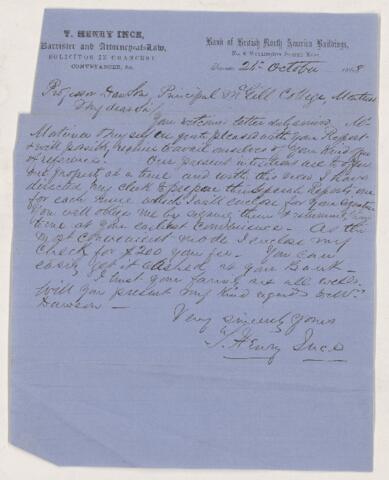 T. HENRY INCE,
Barrister and Attorney-at-Law,
SOLICITOR IN CHANCERY
CONVEYANCER, &c.
Bank of British North America Buildings,
No. 4 Wellington Street East
October 186
Professor Dawson Principal McGill College, Montreal
My dear Sir
Your letter duly Mr
Mortimer & myself are quite pleased with your Report
& will possibly require to avail ourselves of your
& references. Our present intentions are to offer
one property at a time and with this view I have
directed my clerk to prepare three special reports, one
for each mine which I will enclose for your signature
You will oblige me by signing them & returning
time at your earliest convenience. As the
most convenient mode I enclose my
Check for $200 your fee. You can
easily get it cashed at your Bank.
I trust your family are all well.
Will you present my kind regards to Mrs
Dawson.
Very sincerely yours
T. Henry Ince